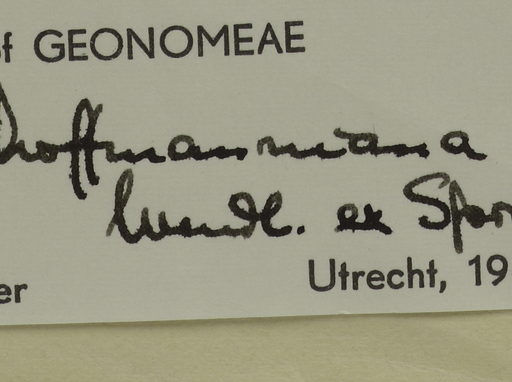 of GEONOMEAE
hoffmanniana
Wendl. ex Spr
er
Utrecht, 19